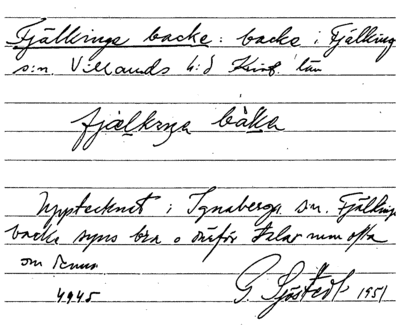 Fjälkinge backe: backe i Fjälkinge
s:n. Villands h:d Krist. län
fjælkɩŋa bàka
Upptecknat i Ignaberga s:n. Fjälkinge
backe syns bra o därför talar man ofta
om denna
4945 G. Sjöstedt 1951